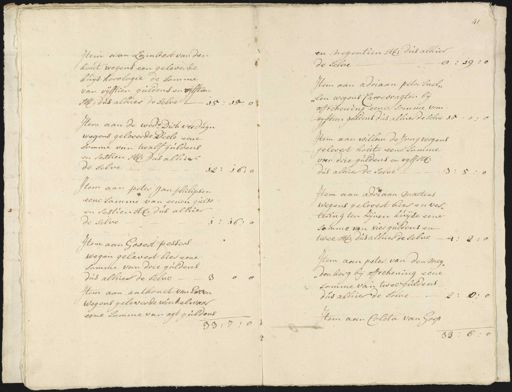 Item aan Lambert van den
hout wegens een geleverde
huys horologie de somme
van vijftien guldens en vijftien
st. dus alhier de selve 15 : 15 : 0
Item aan de wede Dirk
wegens geleverde Deele eene
somme van twaelf guldens
en sestien st. dus alhier
de selve 12 : 16 : 0
Item aan peter Jan philipsen
eene somme van eenen gulde
en sestien st. dus alhier
de selve 1 : 16 : 0
Item aan Goosed
wegens gelevert bier eene
somme van drie guldens
dus alhier de selve 3 0 0
Item aan van
wegens geleverde winkelwaer
eene somme van agt guldens
33 : 7 : 0
41
en negentien st. dus alhier
de selve 8 : 19 : 0
Item aan adriaan peter
wegens by
afrekening eene somme van
vijftien guldens dus alhier de selve 15 : 0 : 0
Item aan willem de Jong wegens
gelevert houte eene somme
van drie guldens en vijff st.
dus alhier de selve 3 : 5 : 0
Item aan adriaan
wegens gelevert bier en
teering ten synen huyse eene
somme van vier guldens en
twee st. dus alhier de selve 4 : 2 : 0
Item aan peter van den
by afrekening eene
somme van twee guldens
dus alhier de selve 2 : 10 : 0
Item aan van
33 : 6 : 0